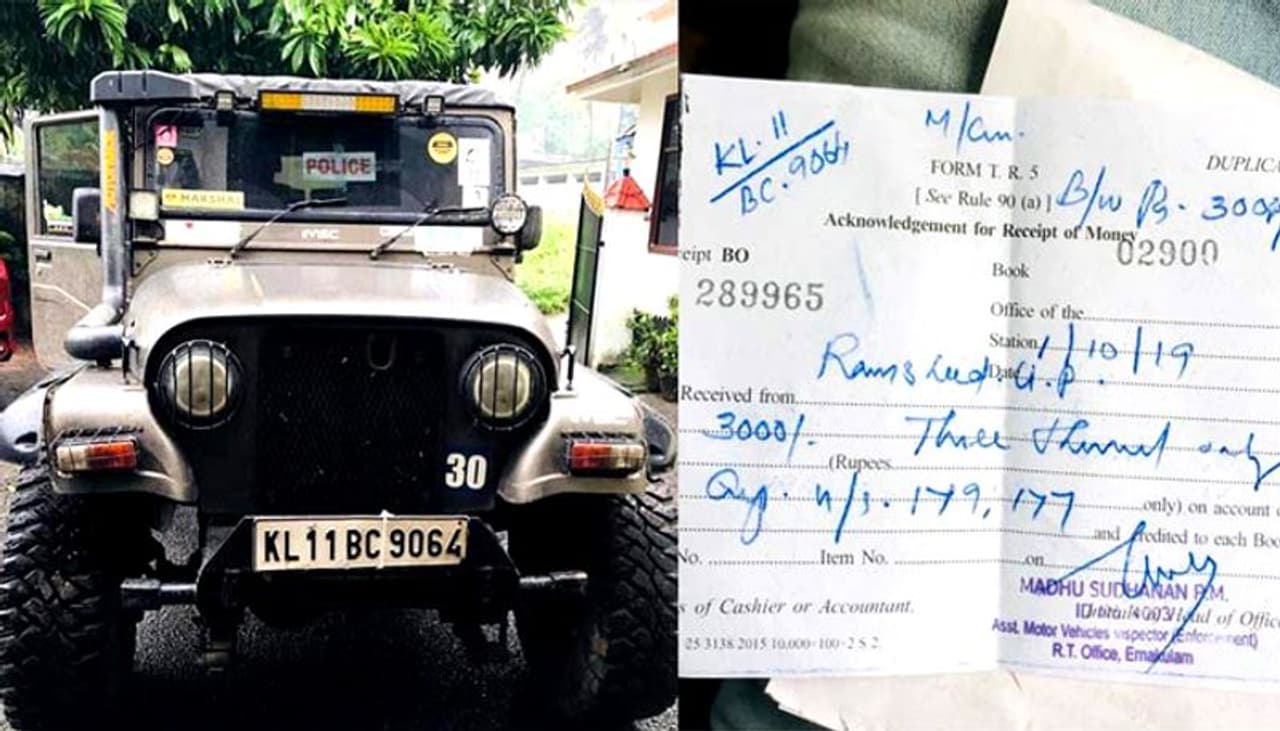 POLICE
MARSHAL
30
KL11BC9064
KL. 11
BC. 9064
M/Cm.
FORM T. R. 5
DUPLICA
[ See Rule 90 (a) ]
B/w Rs. 300
Acknowledgement for Receipt of Money
eipt BO
02900
Book
289965
Office of the
Station
1/10/19
Date
Received from
3000/-
Three only
(Rupees
179, 177
only) on account
and credited to each Boo
No.
Item No.
on
MADHU SUDHANAN P.M.
s of Cashier or Accountant.
ad of Offic
Asst. Motor Vehicles Inspector (Enforcement)
25 3138 2015 10,000-100-2 S 2
R.T. Office, Ernakulam